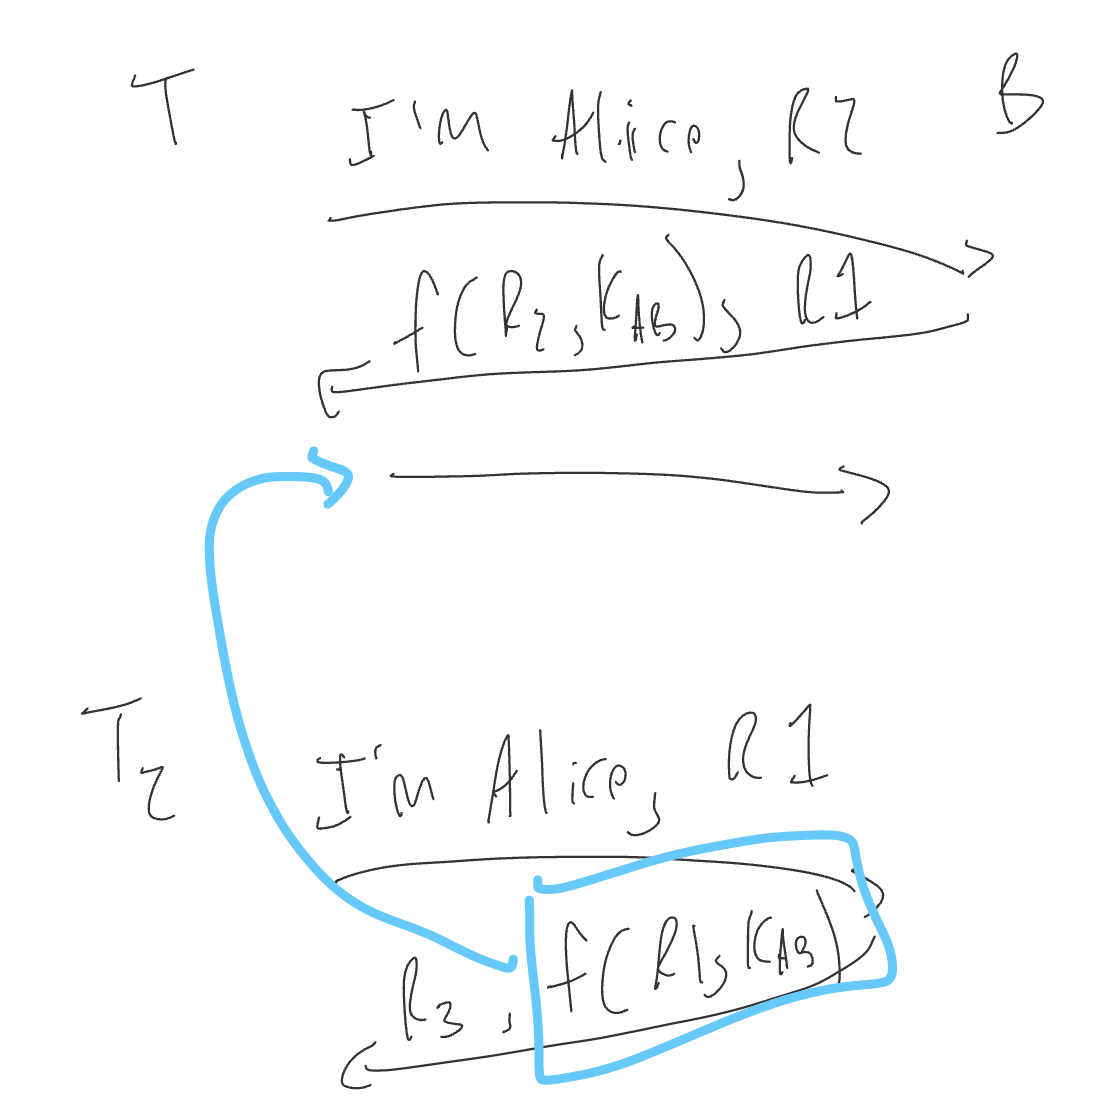 T I'm Alice, R2 B
f(R2, KAB), R1
T2 I'm Alice, R1
R3, f(R1, KAB)